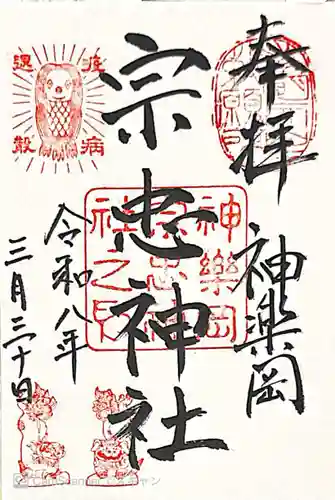 奉拝
神楽岡
宗忠神社
令和八年
三月三十日
疫病
退散
神樂岡
宗忠神
社之印
CamScanner でスキャン